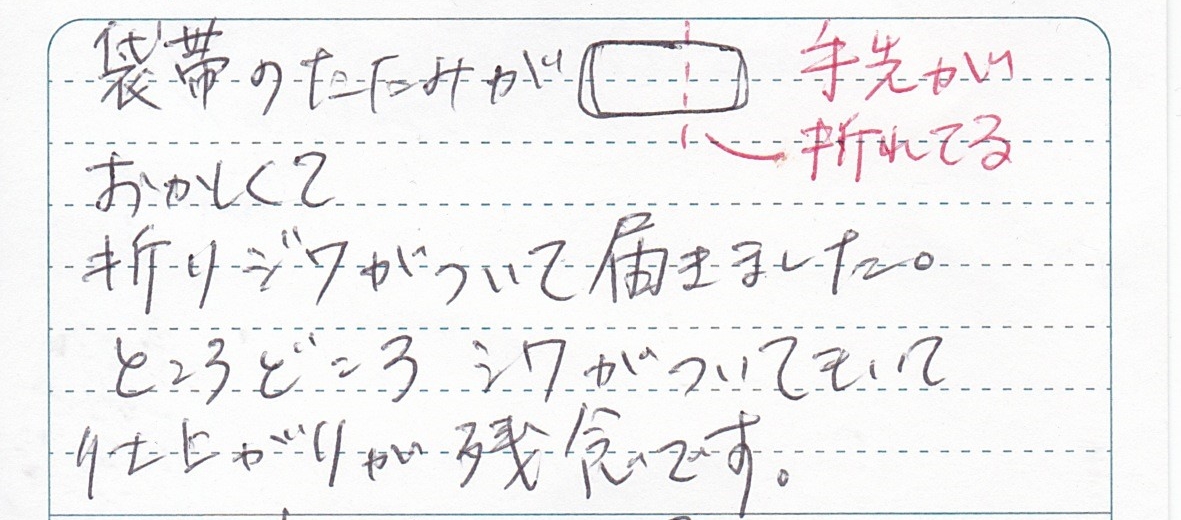 袋帯のたたみが
手先が
折れてる
おかしくて
折りジワがついて届きました。
ところどころシワがついてもいて
仕上がりが残念です。